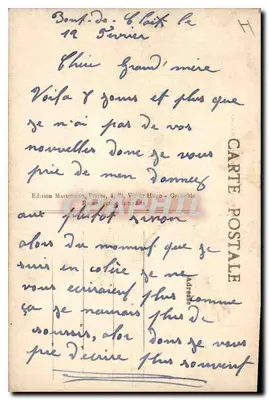 Pont-de-Claix le
12 Février
Chère Grand'mère
Voila 8 jours et plus que
je n'ai pas de vos
nouvelles donc je vous
prie de men donnez
au plutot sinon
alors du moment que je
suis en colère je ne
vous ecriraiet plus comme
ça je naurais plus de
soussis, alor donc je vous
prie d'ecrire plus souvent
CARTE POSTALE
Adresse